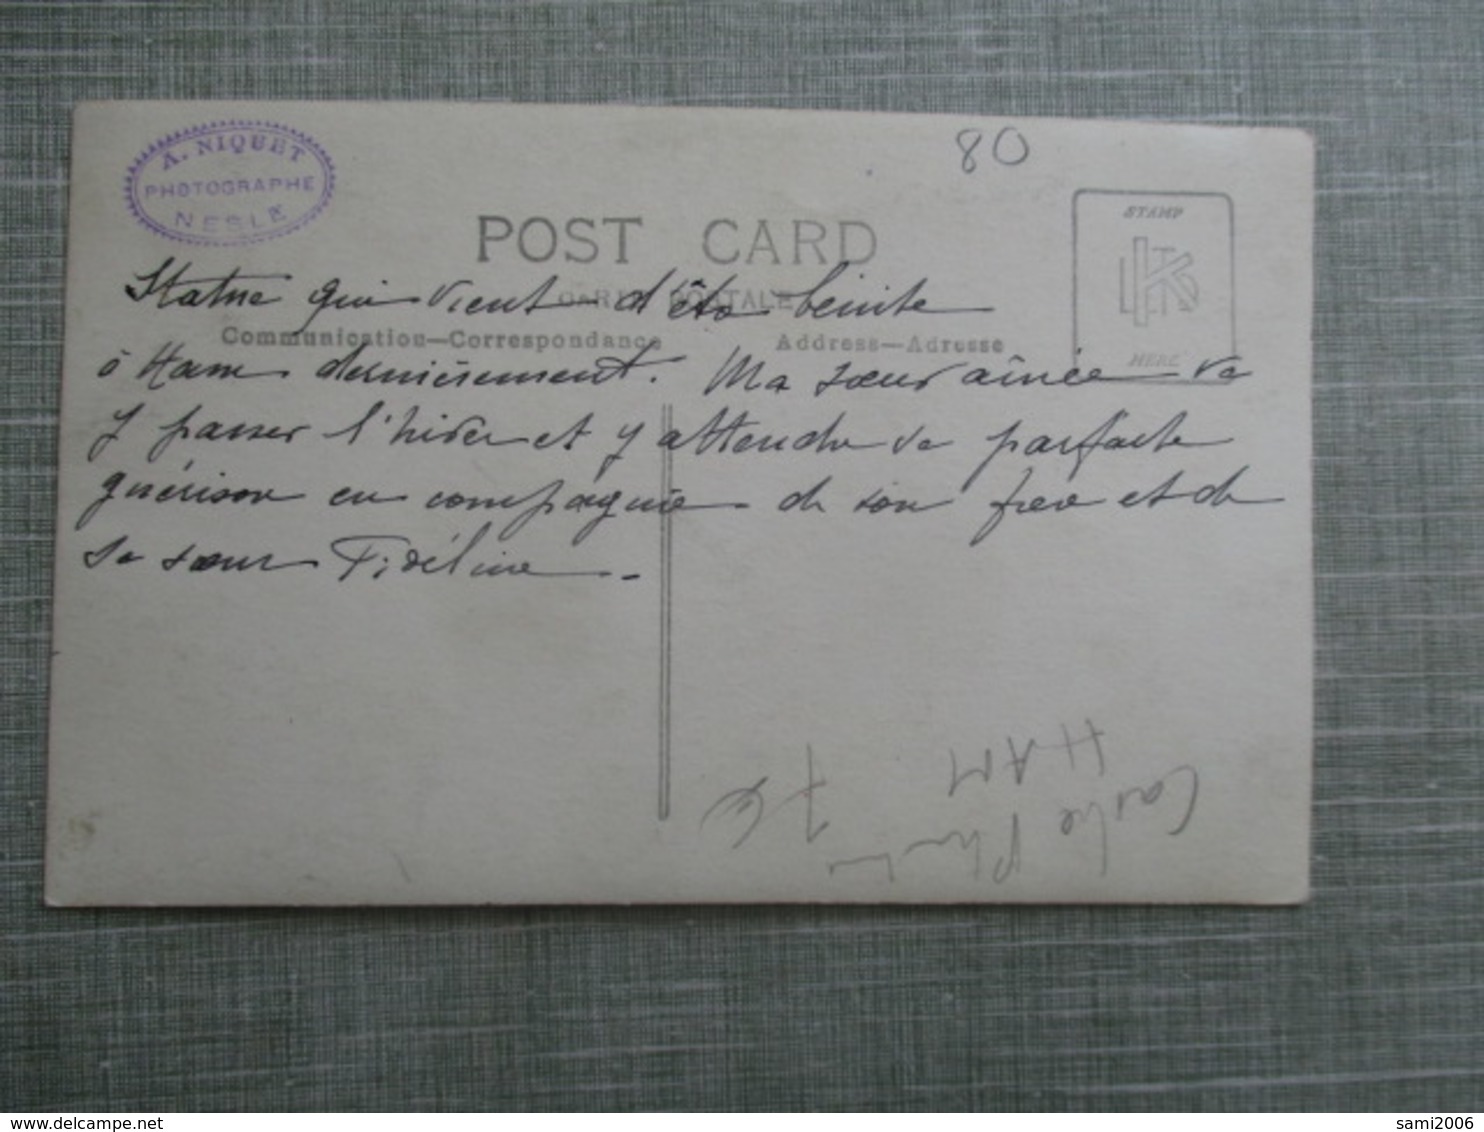 A. NIQUET
PHOTOGRAPHE
NESLE
80
POST CARD
CARTE POSTALE
STAMP
HERE
Communication—Correspondance
Address—Adresse
Statue qui vient d'être bénite
à Ham dernièrement. Ma sœur aînée va
y passer l'hiver et y attendre sa parfaite
guérison en compagnie de son frère et de
sa sœur Fidéline.
Carte Photo
HAM
7€
sami2006